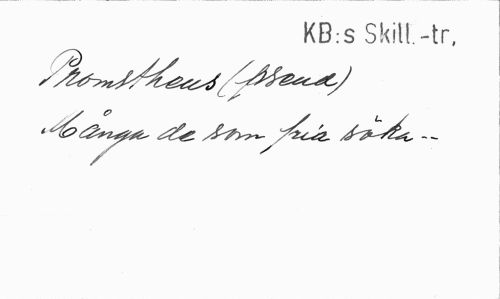 KB:s Skill.-tr,
Promstheus (pseud)
Många de som fria söka --